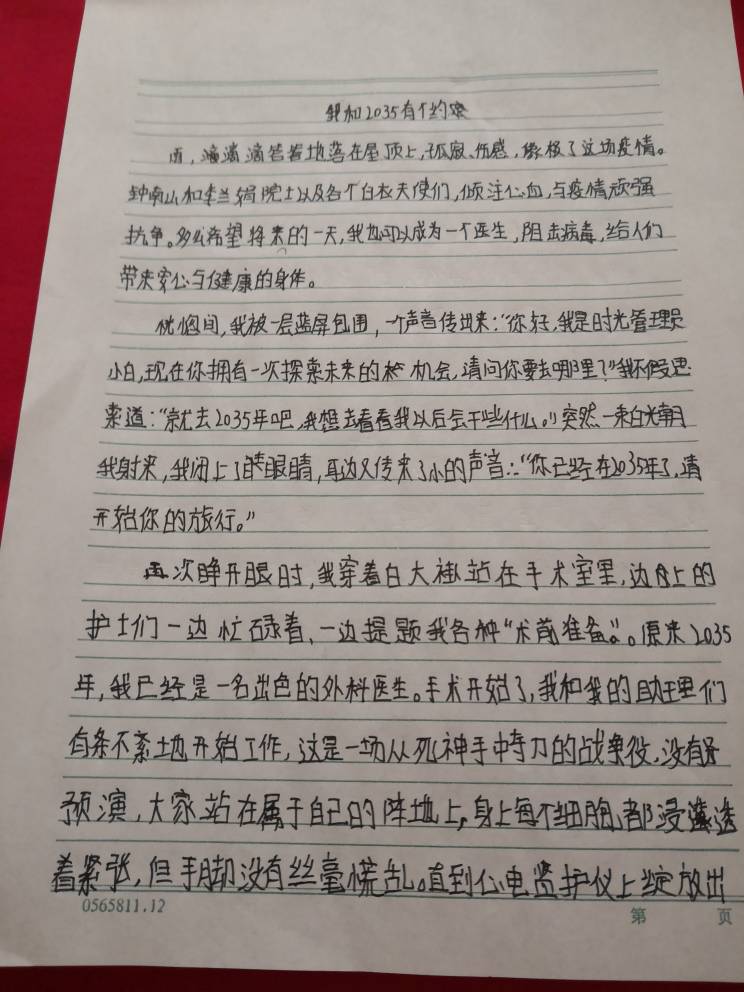 我和2035有个约定
雨，滴滴滴答答地落在屋顶上，孤寂、伤感，像极了这场疫情。
钟南山和李兰娟院士以及各个白衣天使们，倾注心血，与疫情顽强
抗争。多么希望将来的一天，我也可以成为一个医生，阻击病毒，给人们
带来安心与健康的身体。
恍惚间，我被一层蓝屏包围，一个声音传出来：“你好，我是时光管理员
小白，现在你拥有一次探索未来的机会，请问你要去哪里？”我不假思
索道：“就去2035年吧，我想去看看我以后会干些什么。”突然一束白光朝
我射来，我闭上了眼睛，耳边又传来了小的声音：“你已经在2035年了，请
开始你的旅行。”
再次睁开眼时，我穿着白大褂站在手术室里，边上的
护士们一边忙碌着，一边提题我各种“术前准备”。原来2035
年，我已经是一名出色的外科医生。手术开始了，我和我的助理们
有条不紊地开始工作，这是一场从死神手中夺刀的战争役，没有
预演，大家站在属于自己的阵地上，身上每个细胞都浸透
着紧张，但手脚没有丝毫慌乱。直到心电监护仪上绽放出
0565811.12
第 页